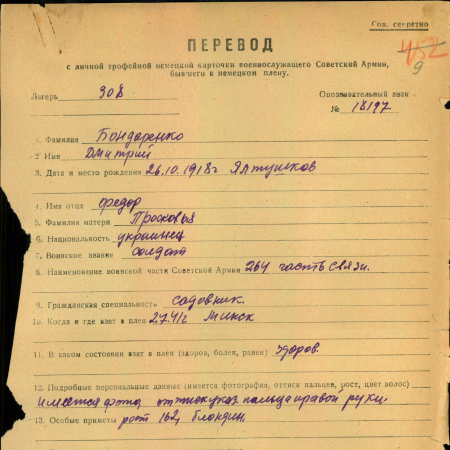 Сов. секретно
ПЕРЕВОД
452
9
с личной трофейной немецкой карточки военнослужащего Советской Армии,
бывшего в немецком плену.
Лагерь 308 Опознавательный знак
№ 18197
1. Фамилия Бондаренко
2 Имя Дмитрий
3. Дата и место рождения 26.10.1918г Ялтушков
4. Имя отца Федор
5. Фамилия матери Прсковья
6. Национальность украинец
7. Воинское звание солдат
8. Наименование воинской части Советской Армии 264 часть связи.
9. Гражданская специальность садовник.
10. Когда и где взят в плен 2.7.41г Минск
11. В каком состоянии взят в плен (здоров, болен, ранен) здоров.
12. Подробные персональные данные (имеется фотография, оттиск пальцев, рост, цвет волос)
имеется фото, оттиск указ. пальца правой руки.
13. Особые приметы рост 162, блондин,